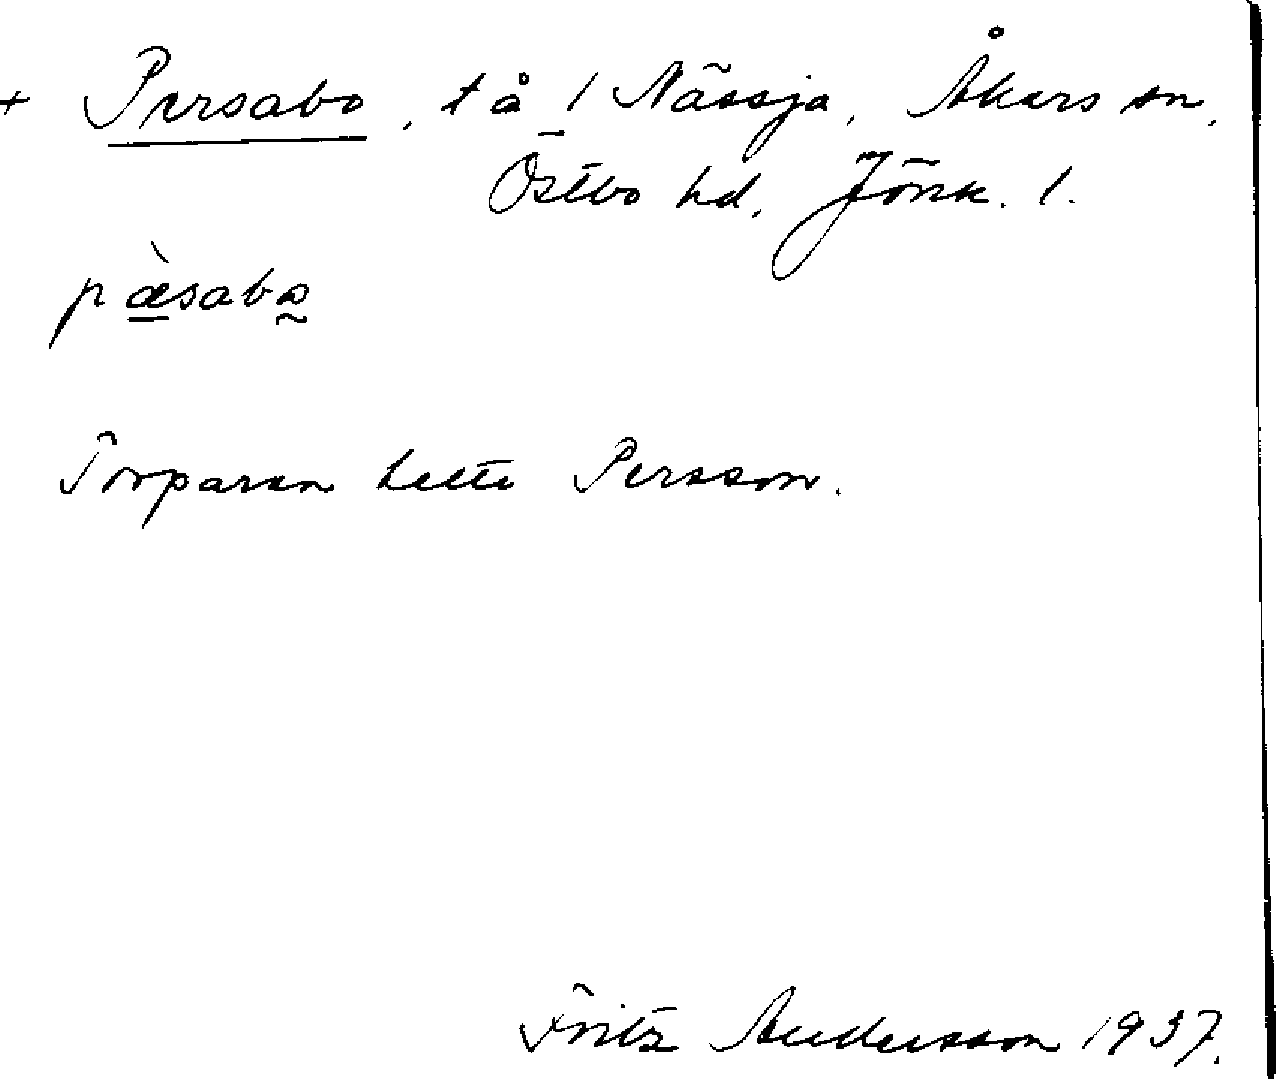 + Persabo, t å 1 Nässja, Åkers sn,
Östbo hd, Jönk. l.
pæ̀sabo
Torparen hette Persson.
Fritz Andersson 1937.